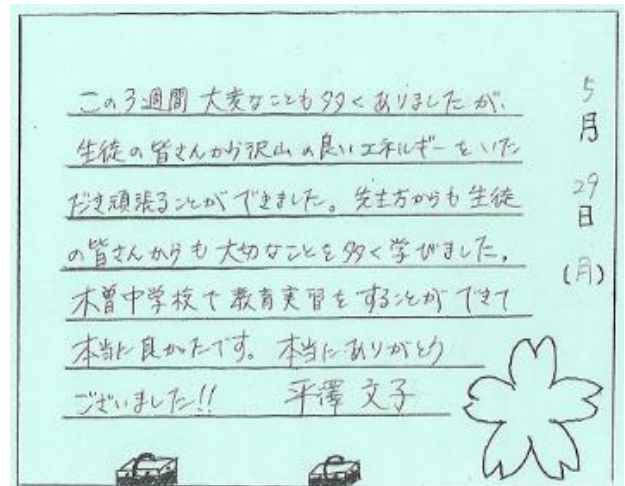 この3週間 大変なことも多くありましたが、
生徒の皆さんから沢山の良いエネルギーをいた
だき頑張ることができました。先生方からも生徒
の皆さんからも大切なことを多く学びました。
木曽中学校で教育実習をすることができて
本当に良かったです。本当にありがとう
ございました!! 平澤 文子
5月29日(月)